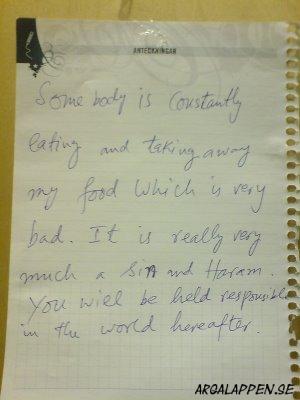 ANTECKNINGAR
Some body is Constantly
eating and taking away
my food which is very
bad. It is really very
much a Sin and Haram.
You will be held responsible
in the world hereafter.
ARGALAPPEN.SE